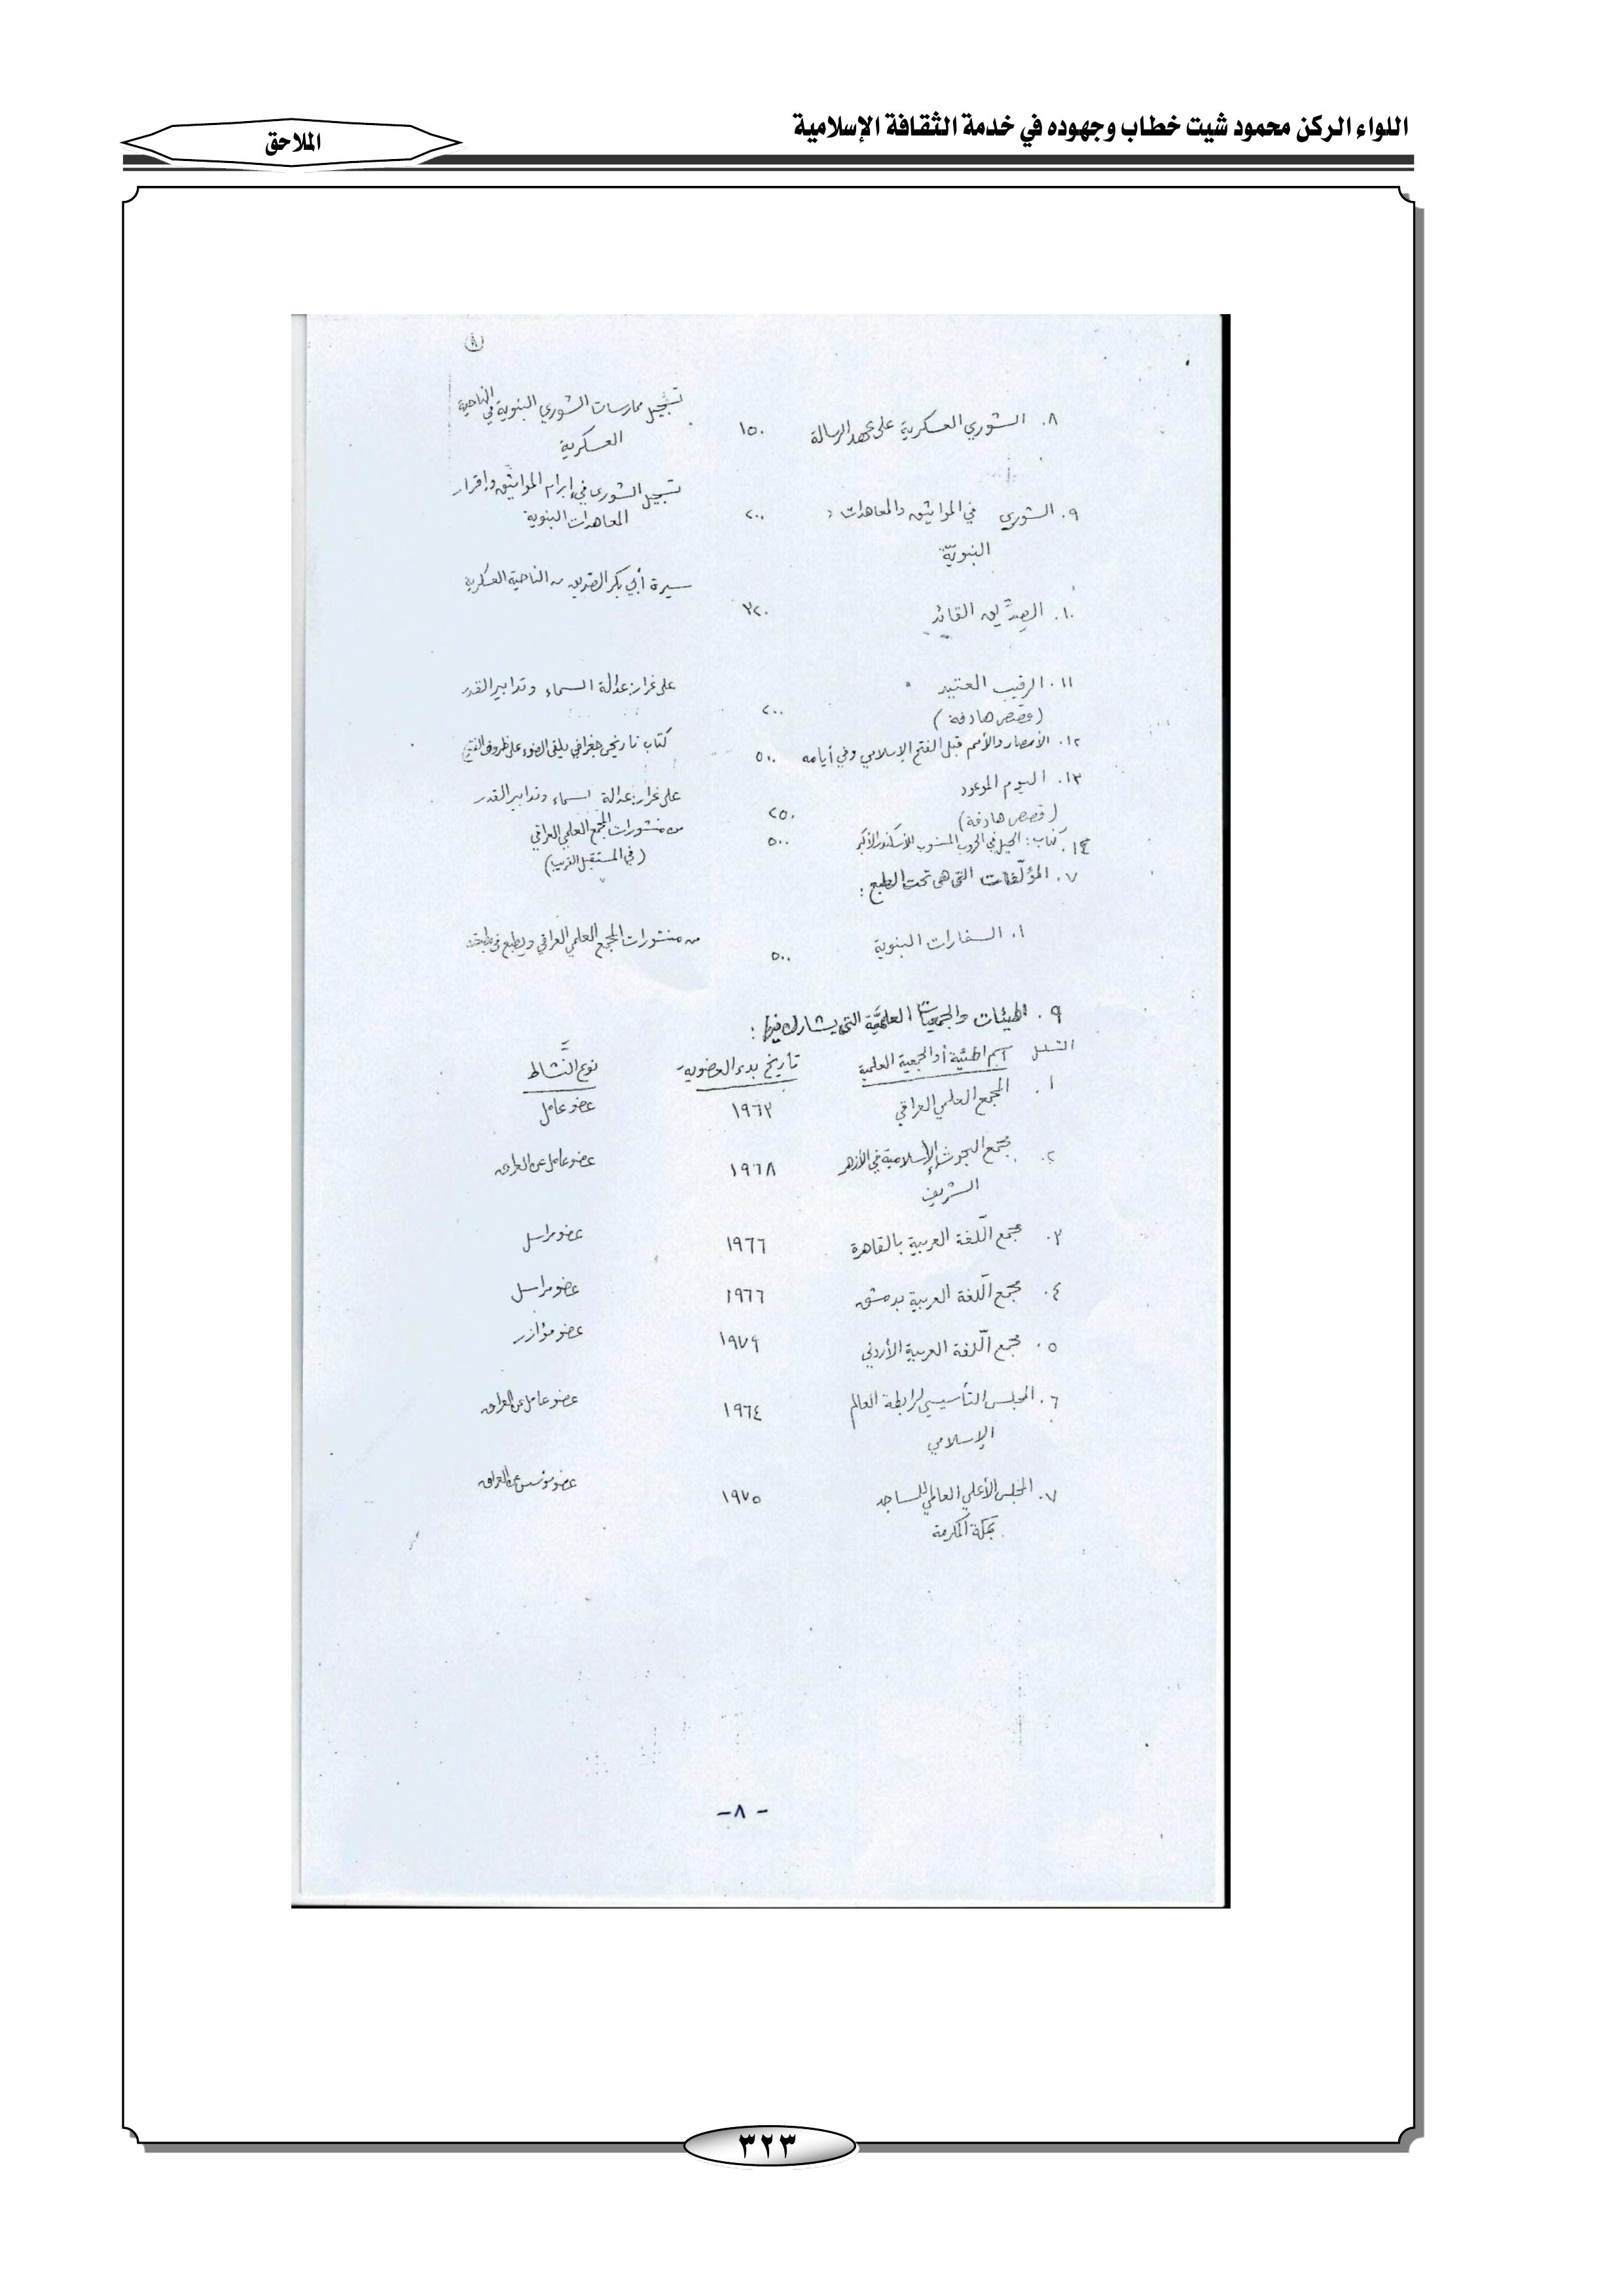 اللواء الركن محمود شيت خطاب وجهوده في خدمة الثقافة الإسلامية
الملاحق
٨
٨. الشورى العسكرية على عهد الرسالة ١٥٠ تسجيل ممارسات الشورى النبوية في الناحية
العسكرية
٩. الشورى في المواثيق والمعاهدات ٢٠٠ تسجيل الشورى في إبرام المواثيق وإقرار
النبويّة المعاهدات النبوية
١٠. الصدّيق القائد ٣٢٠ سيرة أبي بكر الصديق من الناحية العسكرية
١١. الرقيب العتيد على غرار: عدالة السماء وتدابير القدر
(قصص هادفة) ٢٠٠
١٢. الأمصار والأمم قبل الفتح الإسلامي وفي أيامه ٥٠٠ كتاب تاريخي جغرافي يلقى الضوء على ظروف الفتح
١٣. اليوم الموعود على غرار: عدالة السماء وتدابير القدر
(قصص هادفة) ٢٥٠
١٤. كتاب: الحيل في الحروب المنسوب للأسكندر الأكبر ٥٠٠ من منشورات المجمع العلمي العراقي
(في المستقبل القريب)
٧. المؤلّفات التي هي تحت الطبع:
١. السفارات النبوية ٥٠٠ من منشورات المجمع العلمي العراقي ويطبع في
٩. الهيئات والجمعيات العلميَّة التي يشارك فيها:
التسلسل اسم الهيئة أو الجمعية العلمية تأريخ بدء العضوية نوع النّشاط
١. المجمع العلمي العراقي ١٩٦٣ عضو عامل
٢. مجمع البحوث الإسلامية في الأزهر ١٩٦٨ عضو عامل عن العراق
الشريف
٣. مجمع اللّغة العربية بالقاهرة ١٩٦٦ عضو مراسل
٤. مجمع اللّغة العربية بدمشق ١٩٦٦ عضو مراسل
٥. مجمع اللّغة العربية الأردني ١٩٧٩ عضو مؤازر
٦. المجلس التأسيسي لرابطة العالم ١٩٦٤ عضو عامل عن العراق
الإسلامي
٧. المجلس الأعلى العالمي للمساجد ١٩٧٥ عضو مؤسس عن العراق
بمكة المكرمة
- ٨ -
٣٢٣